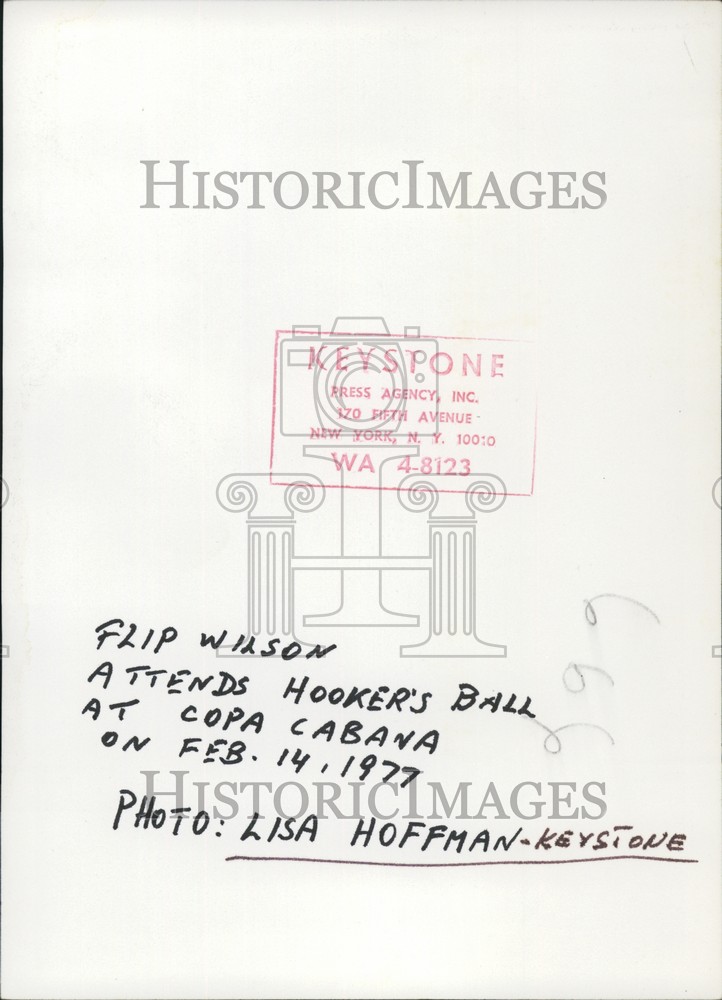 HISTORICIMAGES
KEYSTONE
PRESS AGENCY, INC.
170 FIFTH AVENUE
NEW YORK, N. Y. 10010
WA 4-8123
FLIP WILSON
ATTENDS HOOKER'S BALL
AT COPA CABANA
ON FEB. 14, 1977
HISTORICIMAGES
PHOTO: LISA HOFFMAN-KEYSTONE